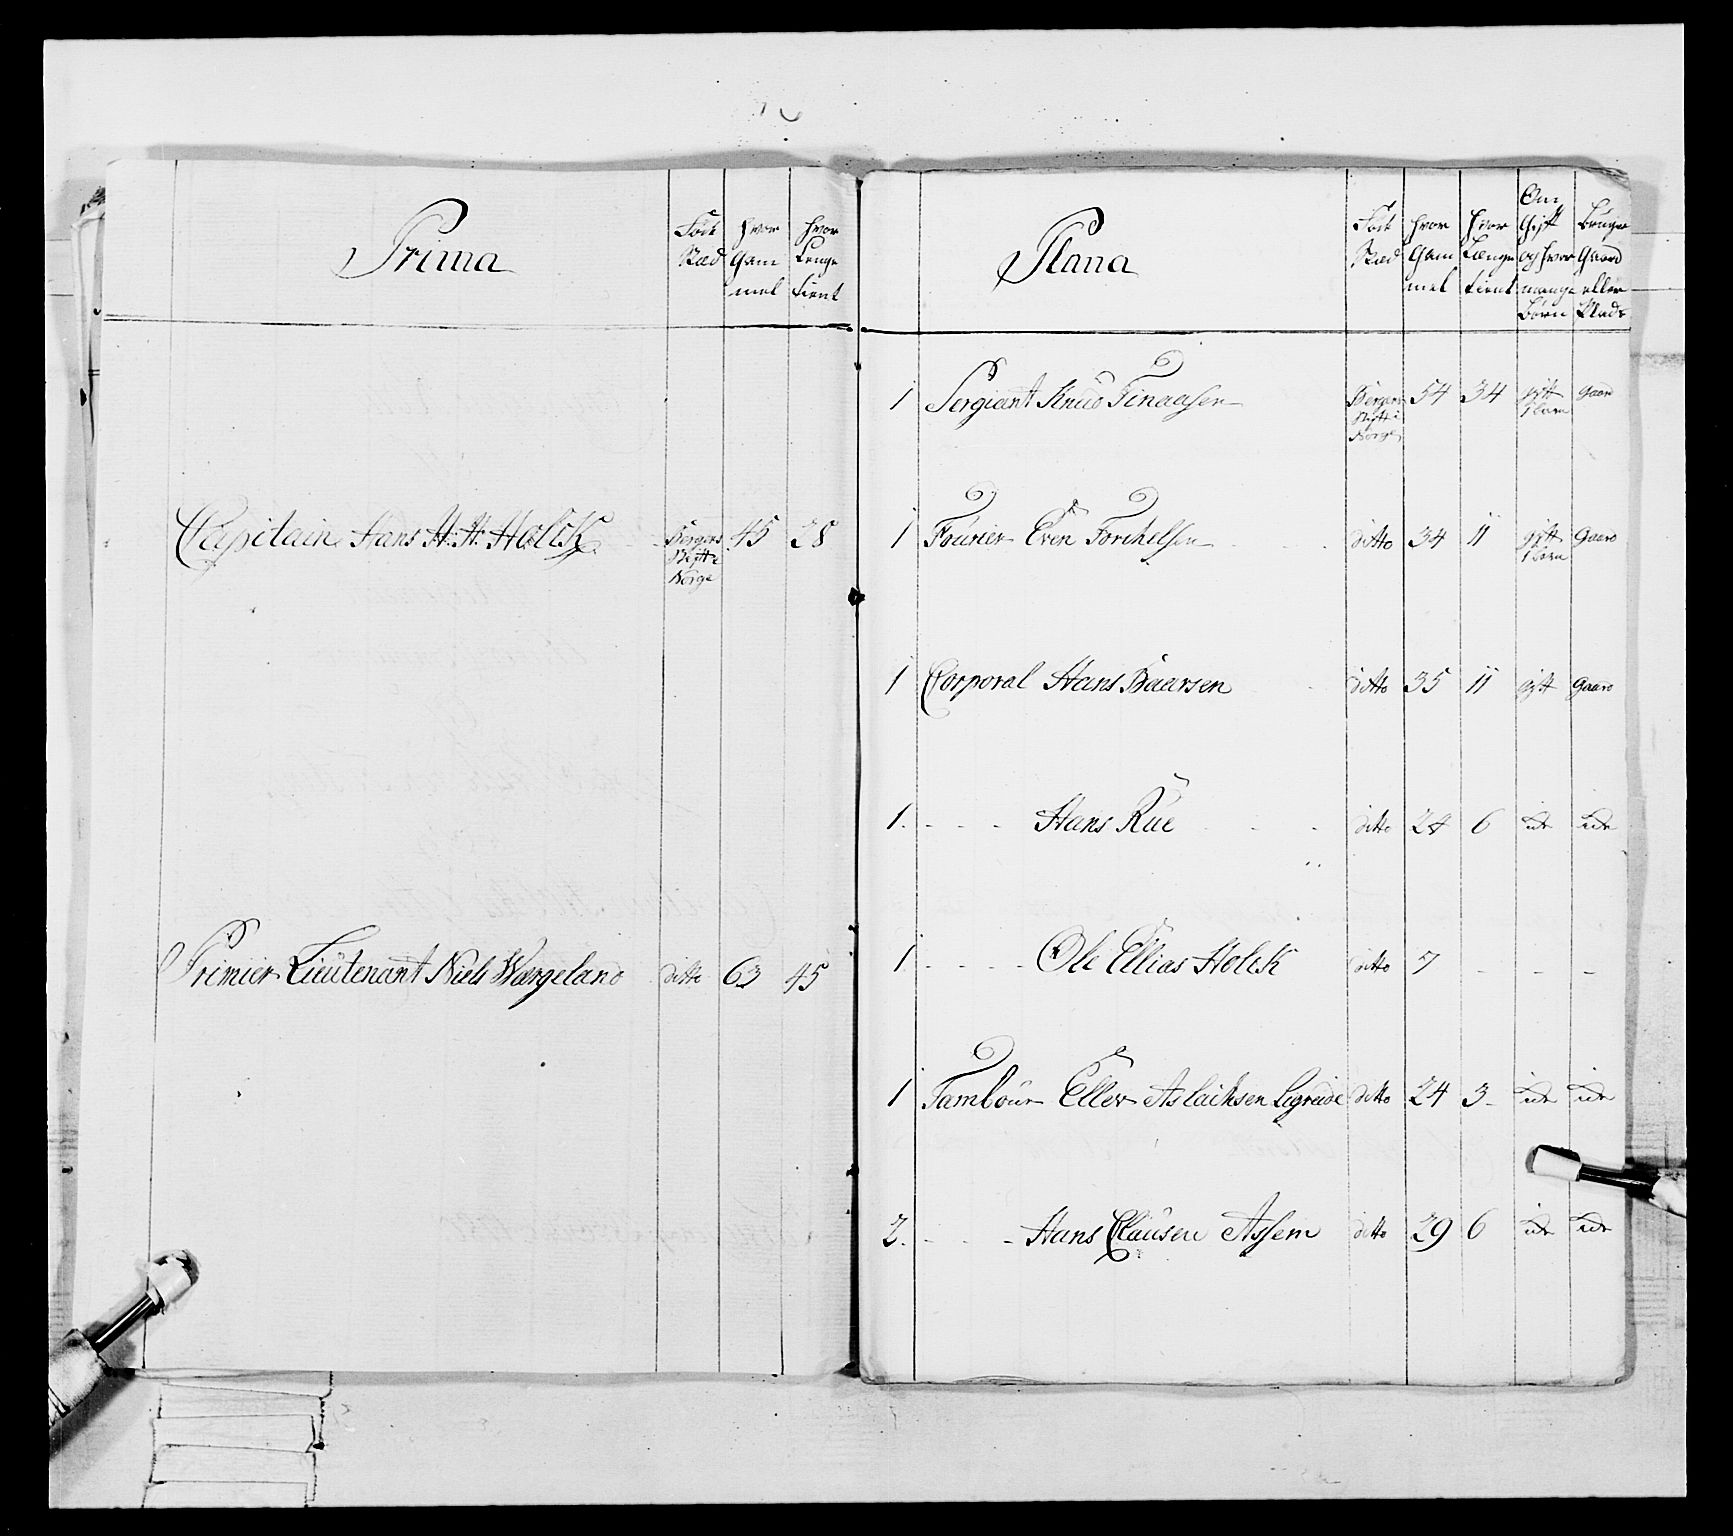 Prima
Föde Stæd
hvor Gam mel
hvor Lenge tient
Capitain Hans H: H: Holck Bergens Stift i Norge 45 28
Primier Lieutenant Niels Wærgeland ditto 63 45
Plana
Föde Stæd
hvor Gam mel
hvor Længe tient
Om Gift og hvor mange Børn
Bruger Gaard eller Plads
1 Sergiant Knud Finaasen Bergens Stift i Norge 54 34 gift 1 barn gaard
1 Fourier Even Torchelsen ditto 34 11 gift 1 barn gaard
1 Corporal Hans Baarsen ditto 35 11 gift gaard
1. - - - Hans Rüe ditto 24 6 ide ide
1 - - - - Ole Ellias Holck ditto 7 - - -
1 Tambour Eller Aslachsen Ligreide ditto 24 3 ide ide
2. - - - Hans Clausen Assem ditto 29 6 ide ide